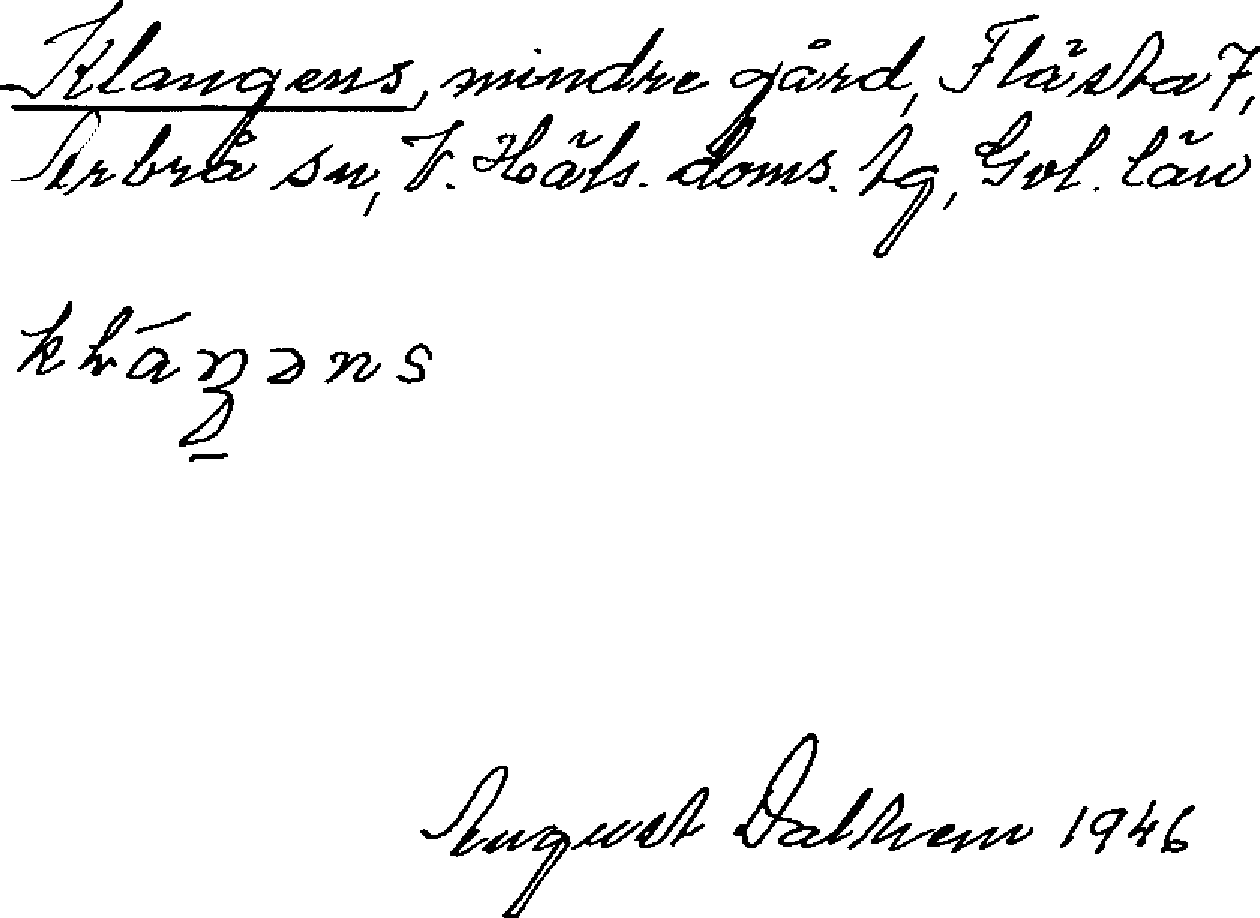 Klangens, mindre gård, Flästa 7,
Arbrå sn, V. Häls. doms. tg, Gvl. län
kláŋəns
August Dalhem 1946